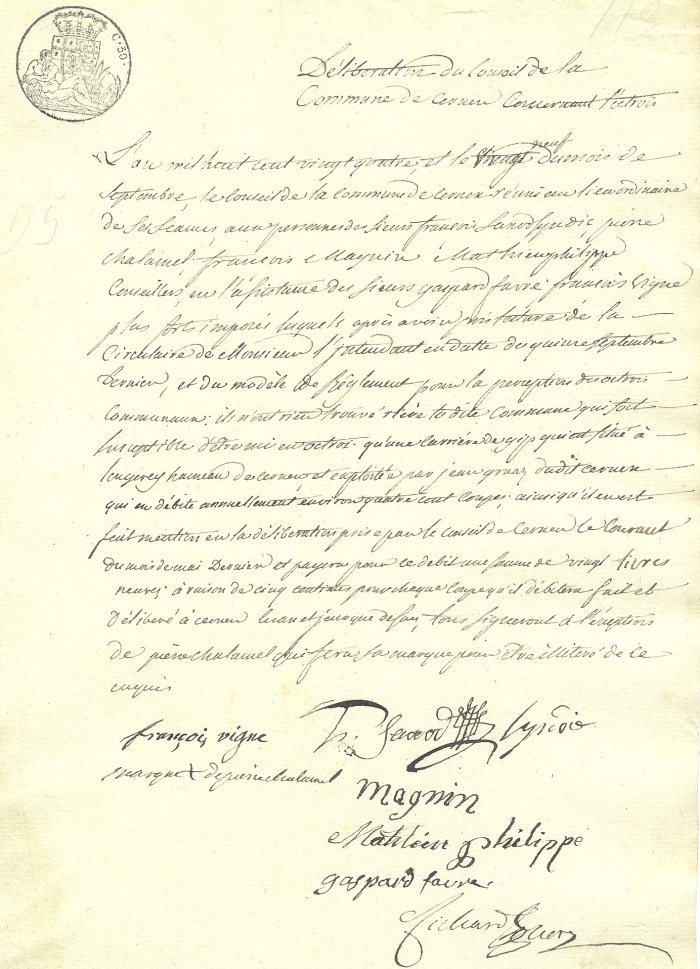 C. 30.
Délibération du Conseil de la
Commune de Cernex Concernant l'octrois
L'an mil huit cent vingt quatre, et le vingt neuf du mois de
Septembre, le Conseil de la Commune de Cernex réuni au lieu ordinaire
de ses séances, aux personnes des sieurs francois Syndic, pierre
chalamel francois Magnin Mathieu philippe
Conseillers en l'assistance des sieurs gaspard favre francois vigne
plus forts imposés lesquels après avoir pris lecture de la
Circulaire de Monsieur l'jntendant en datte du quinze septembre
Dernier, et du modèle de Règlement pour la perception des octrois
Communaux: ils n'ont rien trouvé dite Commune qui soit
susceptible d'être mi en octroi qu'une Carrière de gip qui est situé à
hameau de cernex, et exploitée par jean gruaz dudit cernex
qui en débite annuellement environ quatre cent coupes, ainsi qu'il en est
fait mention en la délibération prise par le conseil de Cernex le Courant
du mois de mai Dernier et payera pour ce débit une somme de vingt livres
neuves à raison de cinq centimes pour chaque coupe qu'il débitera fait et
Délibéré à cernex l'an et jour que dessus, tous signeront à l'éxception
de pierre chalamel qui fera sa marque pour être illiteré de ce
enquis
françois vigne
syndic
marque X de pierre chalamel
magnin
Mathieu philippe
gaspard favre